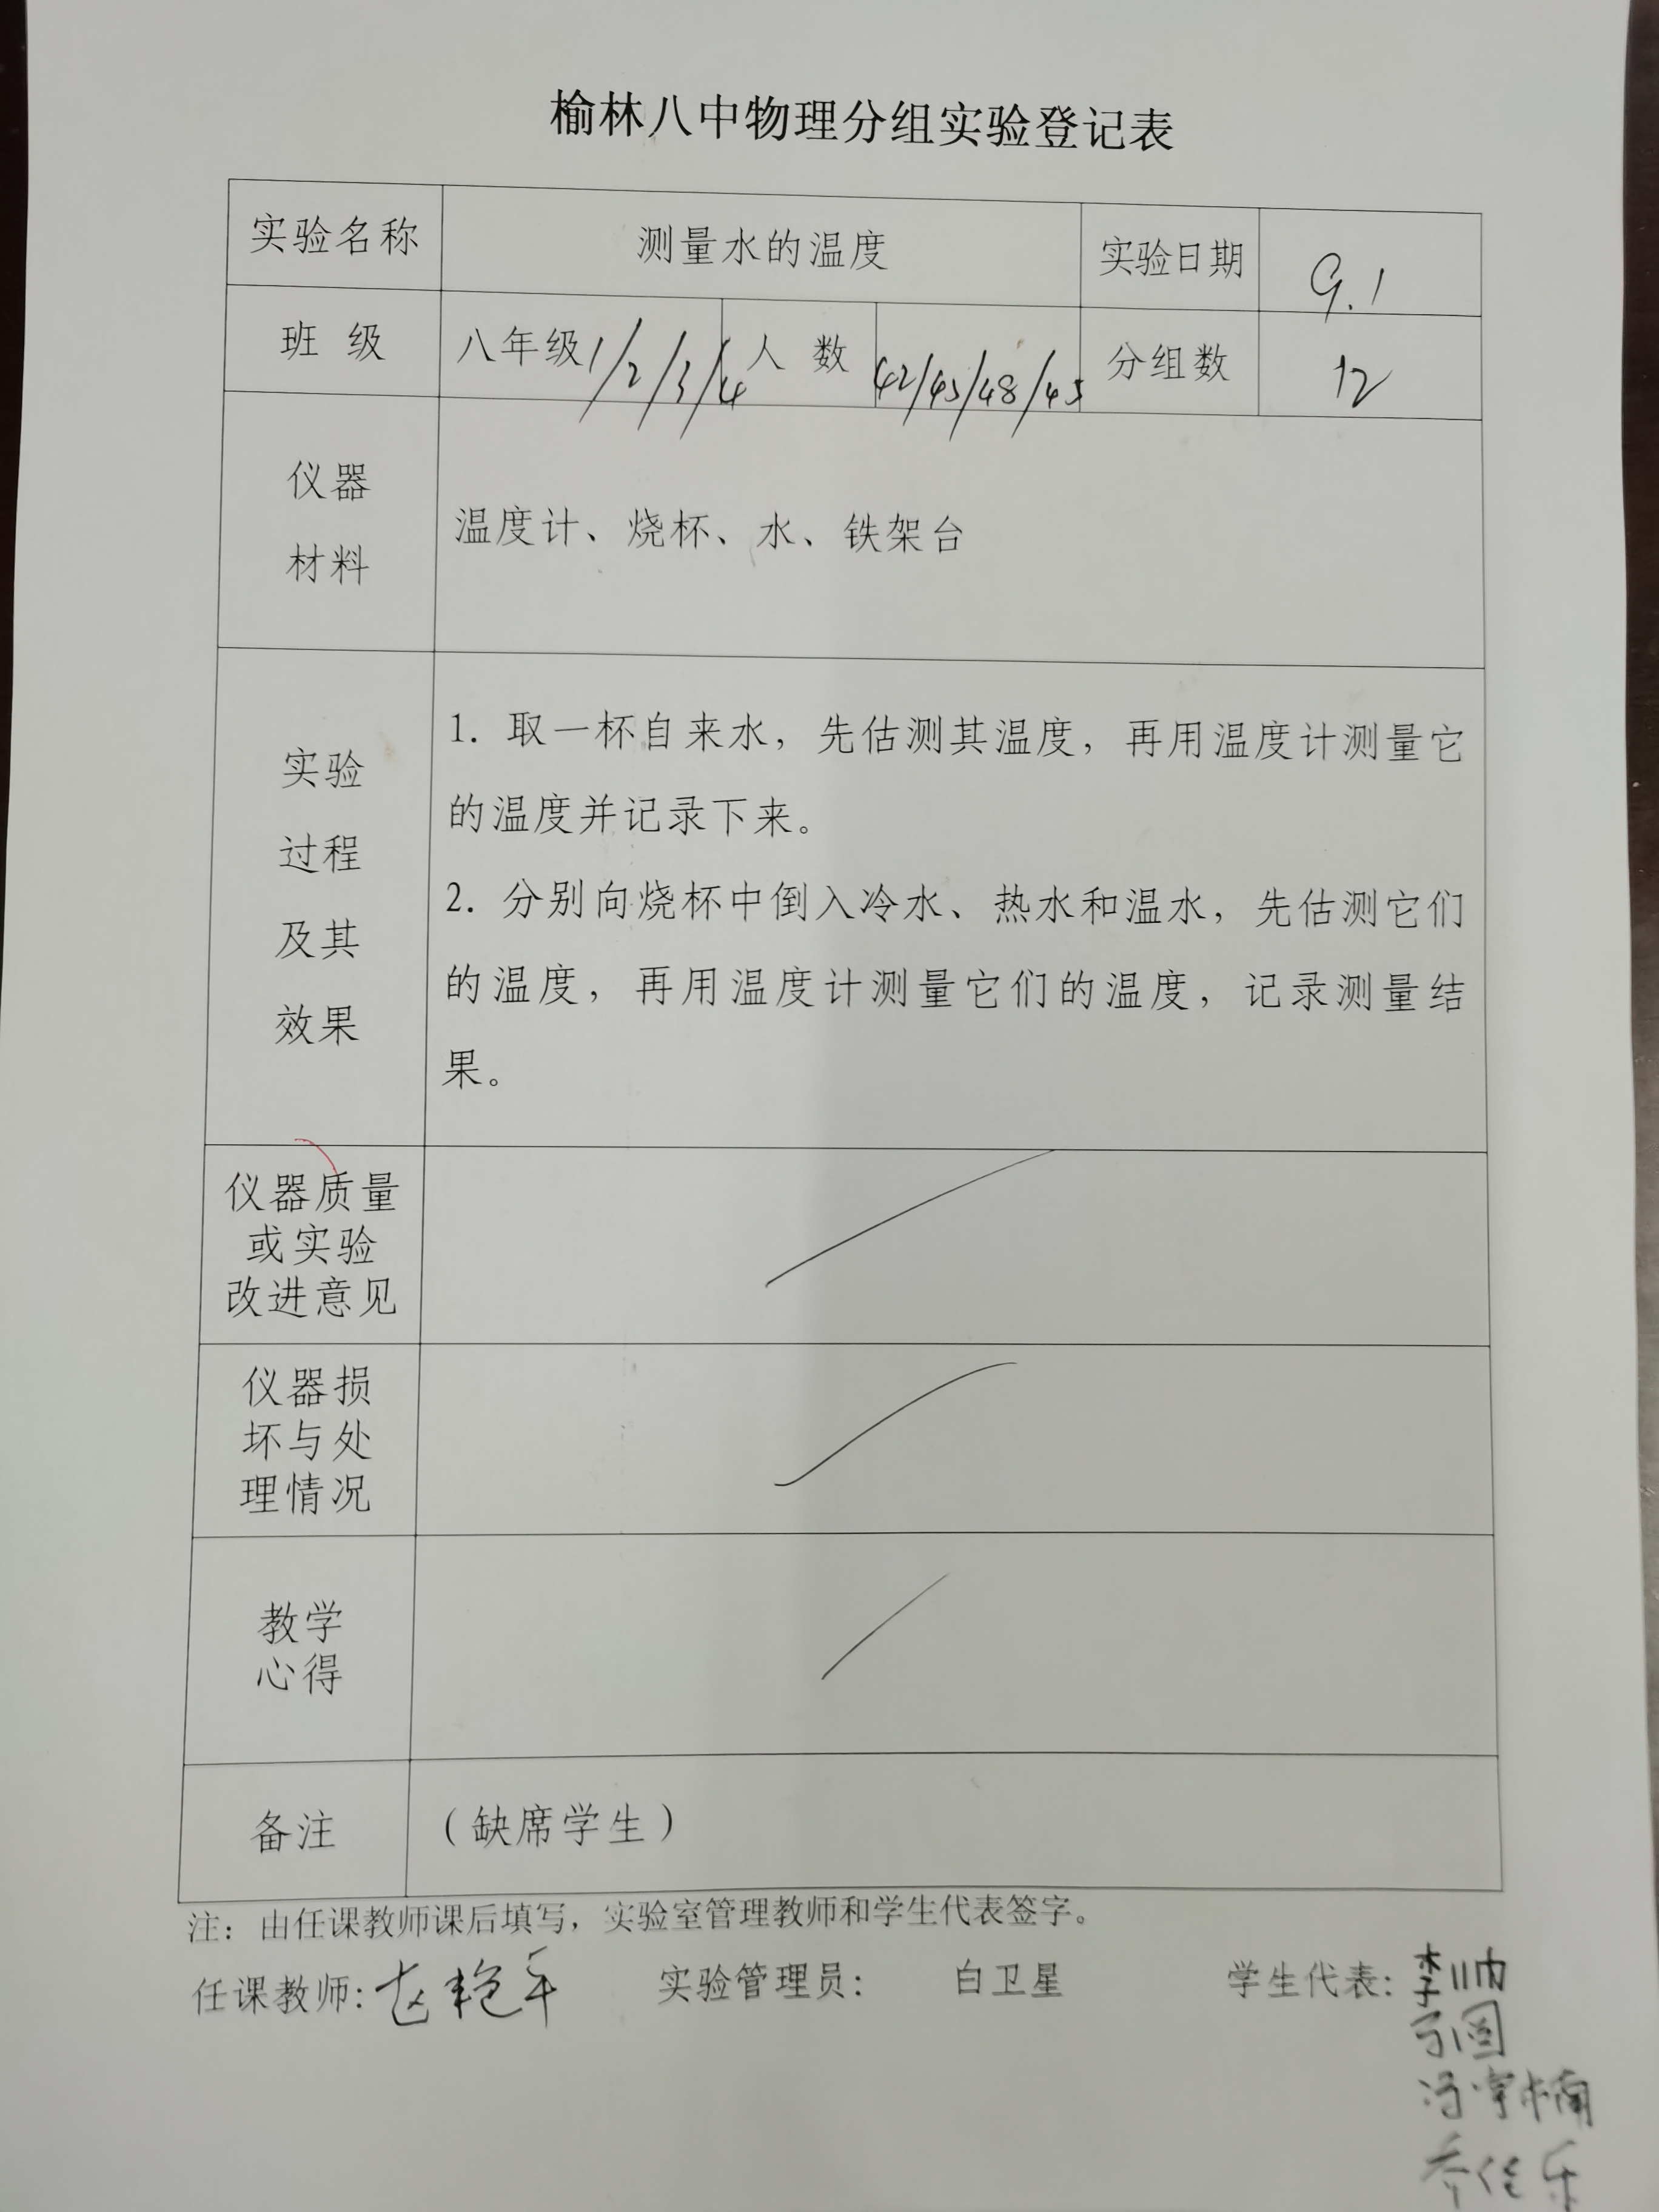 榆林八中物理分组实验登记表
实验名称 测量水的温度 实验日期 9.1
班 级 八年级1/2/3/4 人 数 42/45/48/45 分组数 12
仪器
材料
温度计、烧杯、水、铁架台
实验
过程
及其
效果
1. 取一杯自来水，先估测其温度，再用温度计测量它
的温度并记录下来。
2. 分别向烧杯中倒入冷水、热水和温水，先估测它们
的温度，再用温度计测量它们的温度，记录测量结
果。
仪器质量
或实验
改进意见
仪器损
坏与处
理情况
教学
心得
备注 （缺席学生）
注：由任课教师课后填写，实验室管理教师和学生代表签字。
任课教师: 赵艳军 实验管理员： 白卫星 学生代表: 李帅
乔佳乐